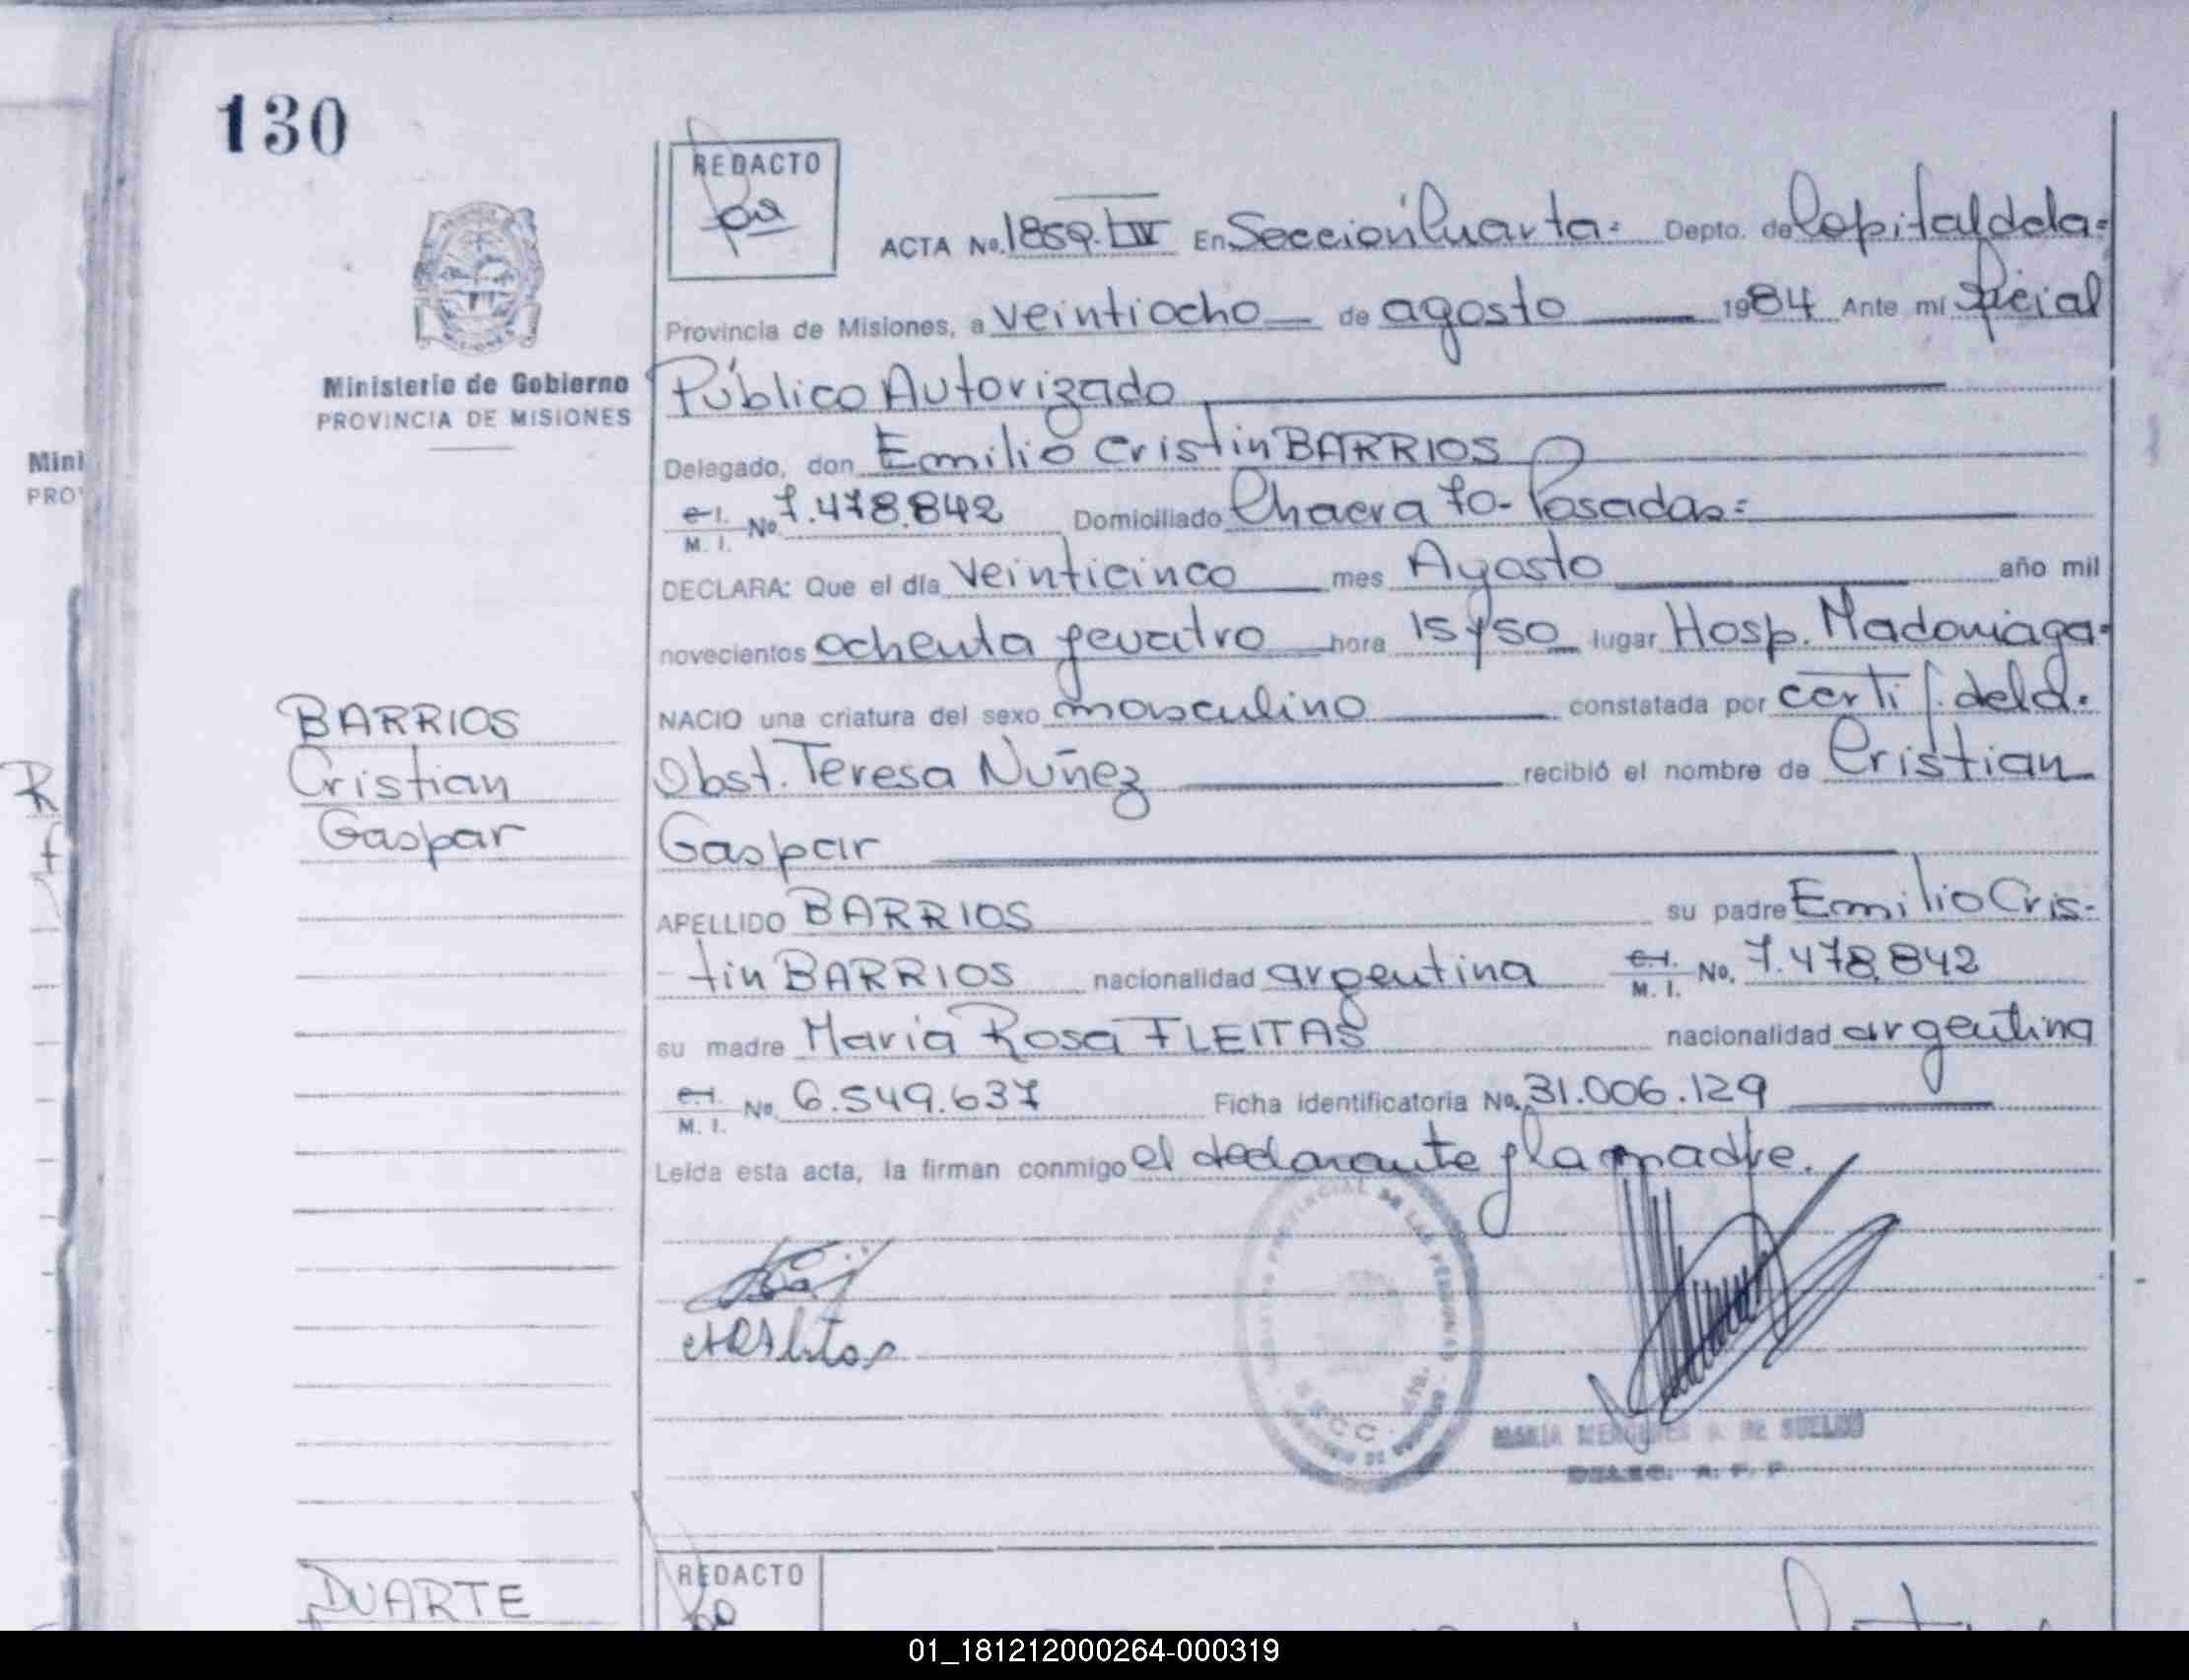 130
REDACTO
ACTA No. 1859. LIV En Sección Cuarta= Depto. de Capital de la=
Provincia de Misiones, a veintiocho de agosto 1984 Ante mí Oficial
Ministerio de Gobierno
PROVINCIA DE MISIONES
Público Autorizado
Delegado, don Emilio Cristin BARRIOS
Mini
PRO
C.I. M. I. No. 7.478.842 Domiciliado Chacra 70- Posadas=
DECLARA: Que el día veinticinco mes Agosto año mil
novecientos ochenta y cuatro hora 15 y 50 lugar Hosp. Madariaga=
BARRIOS
Cristian
Gaspar
NACIO una criatura del sexo masculino constatada por certif. de la
Obst. Teresa Nuñez recibió el nombre de Cristian
Gaspar
APELLIDO BARRIOS su padre Emilio Cris-
-tin BARRIOS nacionalidad argentina C.I. M. I. No. 7.478.842
su madre María Rosa FLEITAS nacionalidad argentina
C.I. M. I. No. 6.549.637 Ficha identificatoria No. 31.006.129
Leída esta acta, la firman conmigo el declarante y la madre.
PROVINCIAL DE LAS PERSONAS
MARIA DE SUELDO
DELEG.
DUARTE
REDACTO
01_181212000264-000319